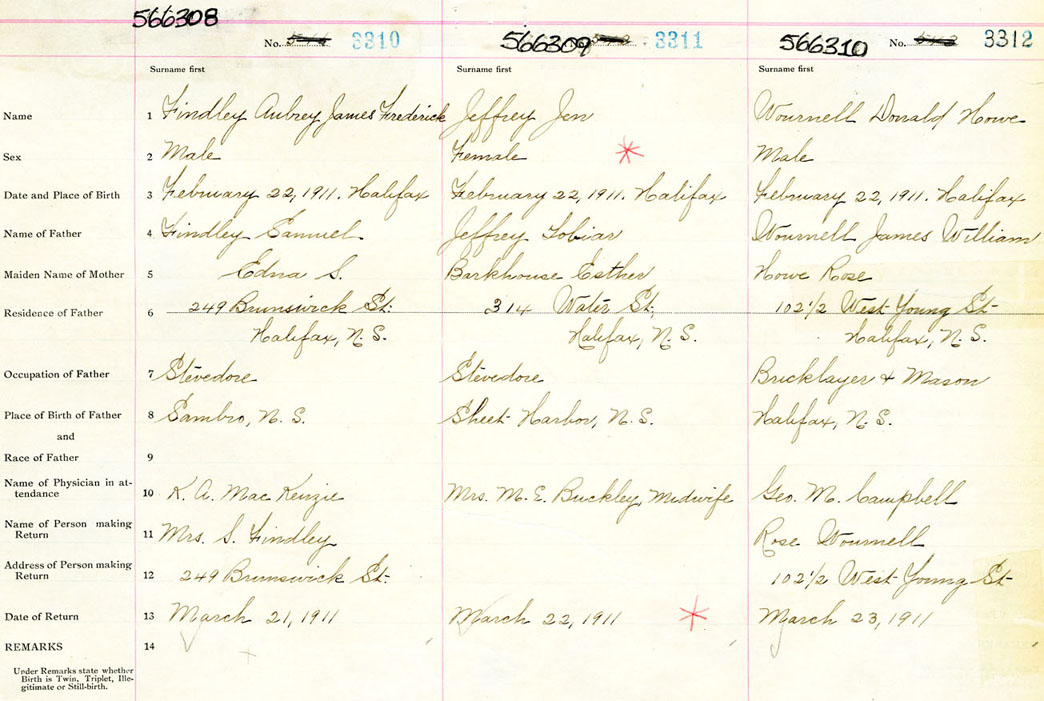 566308
No. 3310
566309
No. 3311
566310
No. 3312
Surname first
Surname first
Surname first
Name 1 Findley Aubrey James Frederick Jeffrey Jen Wournell Donald Howe
Sex 2 Male Female Male
Date and Place of Birth 3 February 22, 1911. Halifax February 22, 1911. Halifax February 22, 1911. Halifax
Name of Father 4 Findley Samuel Jeffrey Tobias Wournell James William
Maiden Name of Mother 5 Edna S. Barkhouse Esther Howe Rose
Residence of Father 6 249 Brunswick St. 314 Water St. 102 1/2 West Young St
Halifax, N.S. Halifax, N.S. Halifax, N.S.
Occupation of Father 7 Stevedore Stevedore Bricklayer & Mason
Place of Birth of Father 8 Sambro, N.S. Sheet Harbor, N.S. Halifax, N.S.
and
Race of Father 9
Name of Physician in at-
tendance 10 K. A. MacKenzie Mrs. M. E. Buckley, Midwife Geo. M. Campbell
Name of Person making
Return 11 Mrs. S. Findley Rose Wournell
Address of Person making
Return 12 249 Brunswick St. 102 1/2 West Young St
Date of Return 13 March 21, 1911 March 22, 1911 March 23, 1911
REMARKS 14
Under Remarks state whether
Birth is Twin, Triplet, Ille-
gitimate or Still-birth.